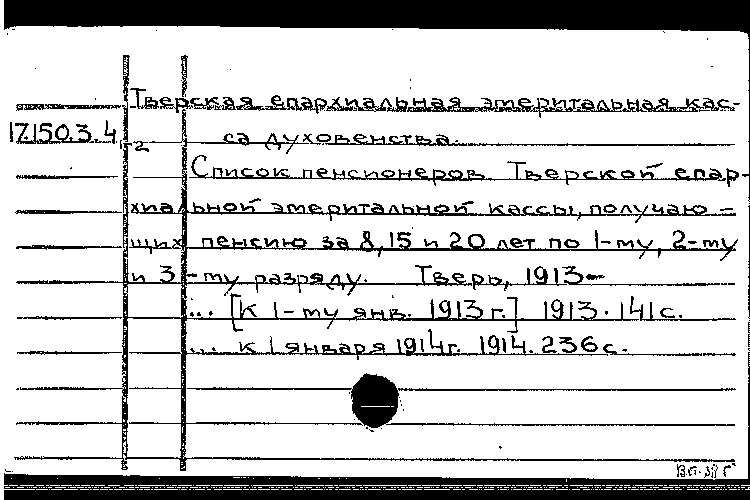 Тверская епархиальная эмеритальная кас-
17.150.3.4
1-2
са духовенства.
Список пенсионеров Тверской епар-
хиальной эмеритальной кассы, получаю-
щих пенсию за 8, 15 и 20 лет по 1-му, 2-му
и 3-му разряду. Тверь, 1913-
... [к 1-му янв. 1913 г.]. 1913. 141 с.
... к 1 января 1914г. 1914. 236 с.